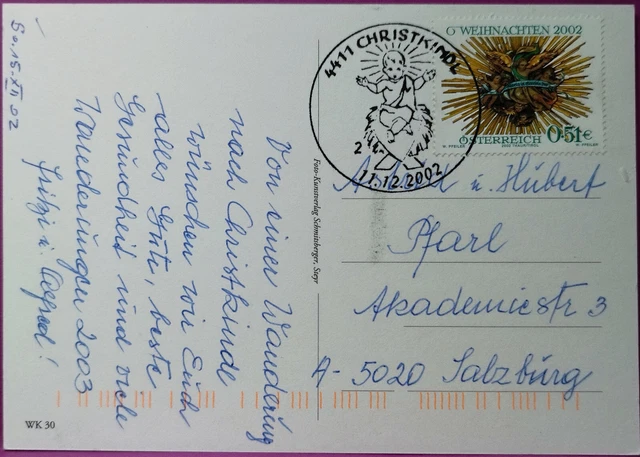 So. 15. XII. 02
Von einer Wanderung
nach Christkindl
wünschen wir Euch
alles Gute, beste
Gesundheit und viele
Wanderungen 2003
Fritzi u. Alfred!
Foto-Kunstverlag Schmitzberger, Steyr
WK 30
4411 CHRISTKINDL
2
11.12.2002
WEIHNACHTEN 2002
ÖSTERREICH 0.51€
u. Hubert
Pfarl
Akademiestr 3
A-5020 Salzburg